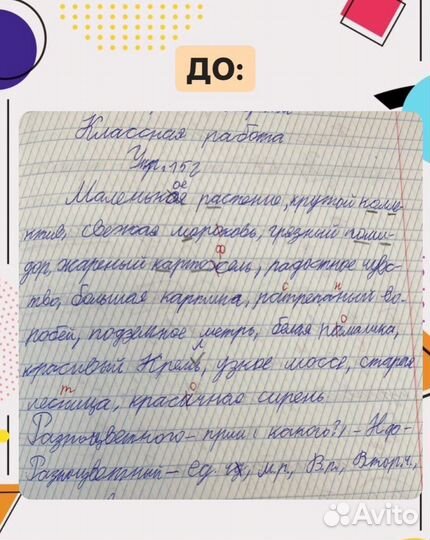 ДО:
Классная работа
Упр. 152
Маленькое растение, крутой колле
ктив, свежая морковь, грязный поми
дор, жареный картофель, радостное чувс-
тво, большая картина, растрепанный во-
робей, подземное метро, белая помашка,
красивый Кремль, узкое шоссе, старая
лестница, красочная сирень.
Разноцветного – прил. (какого?) – Н.ф.
Разноцветный – ед. ч., м.р., В.п.,
Avito